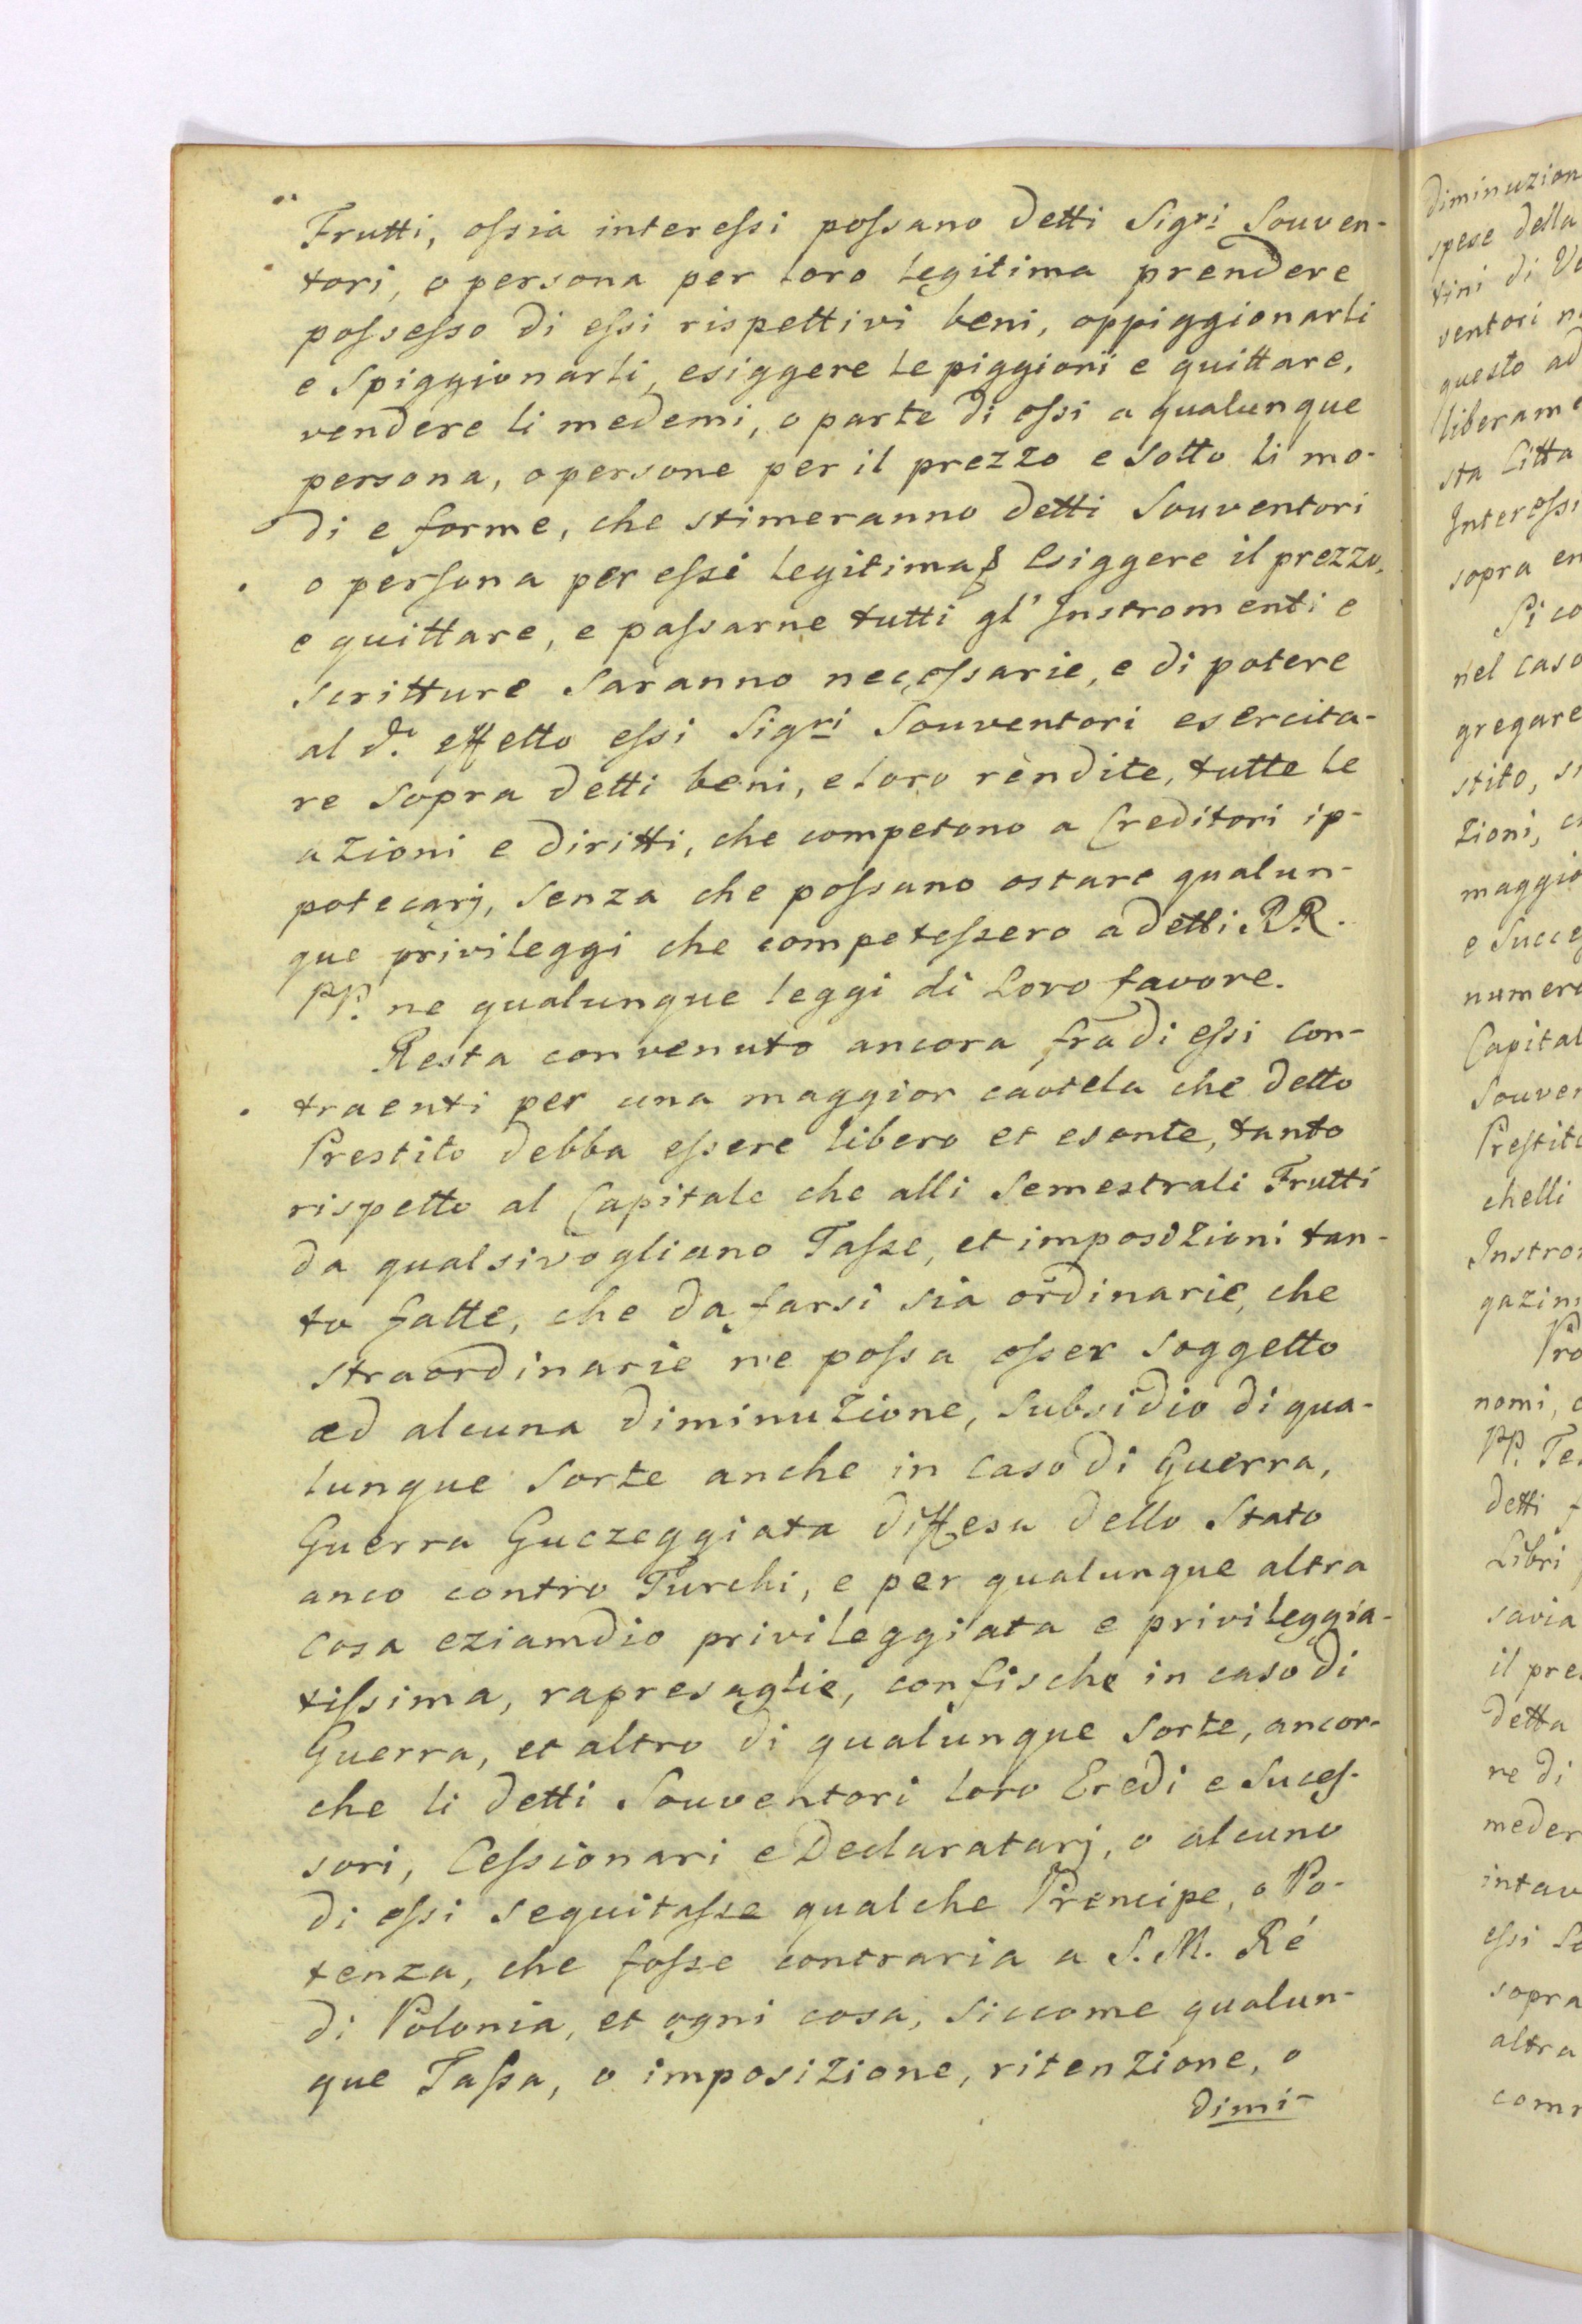 Frutti, ossia interessi possano detti Sigri Souven-
tori, o persona per loro legitima prendere
possesso di essi rispettivi beni, oppiggionarli
e spiggionarli, esiggere le piggioni e quittare,
vendere li medemi, o parte di essi a qualunque
persona, o persone per il prezzo e sotto li mo-
di e forme, che stimeranno detti Souventori
o persona per essi legitima, Esiggere il prezzo,
e quittare, e passarne tutti gl' Instromenti e
scritture saranno necessarie, e di potere
al do. effetto essi Sigri Souventori esercita-
re sopra detti beni, e loro rendite, tutte le
azioni e diritti, che competono a Creditori ip-
potecarj, senza che possano ostare qualun-
que privileggi che competessero a detti RR.
PP. ne qualunque leggi di Loro favore.
Resta convenuto ancora fra di essi con-
traenti per una maggior cautela che detto
Prestito debba essere libero et esente, tanto
rispetto al Capitale che alli semestrali Frutti
da qualsivogliano Tasse, et imposizioni tan-
to fatte, che da farsi sia ordinarie, che
straordinarie ne possa esser soggetto
ad alcuna diminuzione, subsidio di qua-
lunque sorte anche in caso di Guerra,
Guerra Guerreggiata diffesa dello Stato
anco contro Turchi, e per qualunque altra
cosa eziamdio privileggiata e privileggia-
tissima, rapresaglie, confische in caso di
Guerra, et altro di qualunque sorte, ancor-
che li detti Souventori loro Eredi e Suces-
sori, Cessionari e Declaratarj, o alcuno
di essi seguitasse qualche Prencipe, o Po-
tenza, che fosse contraria a S. M. Ré
di Polonia, et ogni cosa, siccome qualun-
que Tassa, o imposizione, ritenzione, o
dimi-
diminuzion
spese della
tini di Ve
ventori n
questo ad
liberam
sta Citta
Interessi
sopra en
Si co
nel caso
gregare
stito, si
zioni, c
maggio
e Succe
numera
Capital
Souven
Prestito
chelli
Instro
gazin
Pro
nomi,
PP. Te
detti f
Libri
savia
il pre
detta
re di
meder
intav
essi So
sopra
altra
com